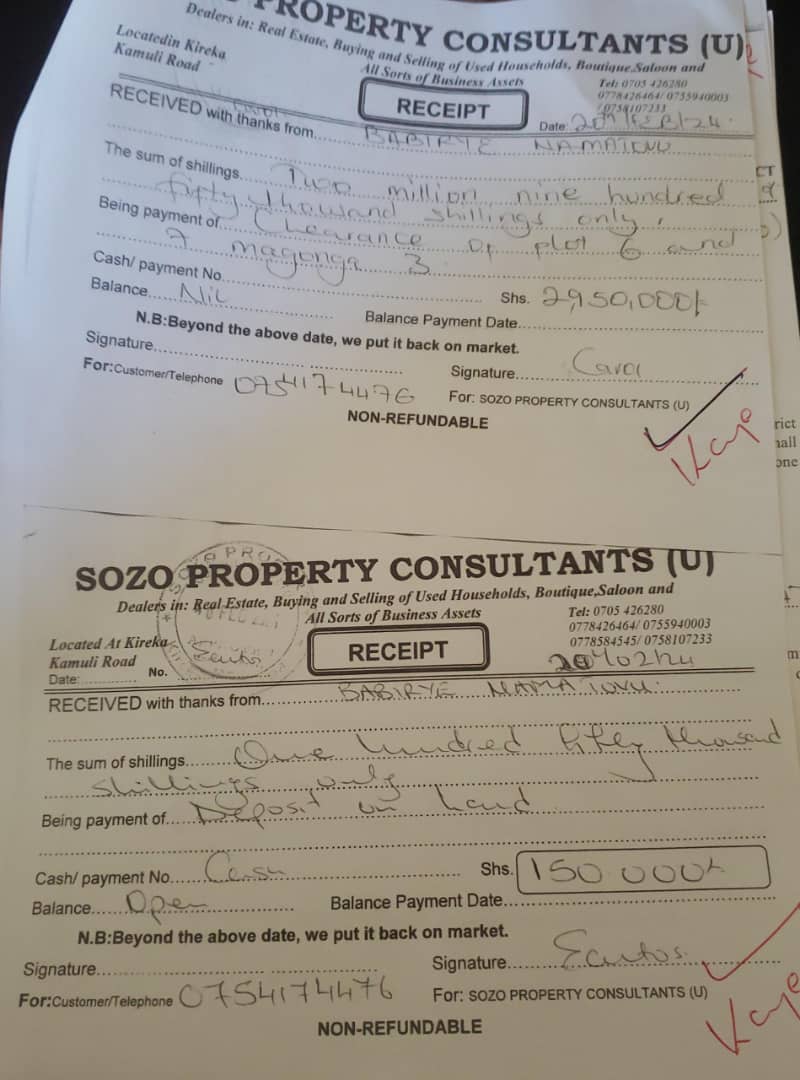 PROPERTY CONSULTANTS (U)
Dealers in: Real Estate, Buying and Selling of Used Households, Boutique,Saloon and
All Sorts of Business Assets
Locatedin Kireka
Kamuli Road
Tel: 0705 426280
0778426464/ 0755940003
/0758107233
RECEIPT
Date:
RECEIVED with thanks from BABIRYE NAMATOVU
The sum of shillings Two million nine hundred
fifty thousand shillings only.
Being payment of Clearance of plot 6 and
7 magonga 3
Cash/ payment No.
Shs. 2,950,000/-
Balance Nil
Balance Payment Date
N.B:Beyond the above date, we put it back on market.
Signature
Signature Carol
For:Customer/Telephone 0754174476
For: SOZO PROPERTY CONSULTANTS (U)
NON-REFUNDABLE
SOZO PROPERTY CONSULTANTS (U)
Dealers in: Real Estate, Buying and Selling of Used Households, Boutique,Saloon and
All Sorts of Business Assets
Located At Kireka
Kamuli Road
Tel: 0705 426280
0778426464/ 0755940003
0778584545/ 0758107233
RECEIPT
Date: No.
RECEIVED with thanks from BABIRYE NAMATOVU
The sum of shillings One hundred fifty thousand
shillings only
Being payment of Deposit in hand
Cash/ payment No. Cash
Shs. 150.000/-
Balance Open
Balance Payment Date
N.B:Beyond the above date, we put it back on market.
Signature
Signature
For:Customer/Telephone 0754174476
For: SOZO PROPERTY CONSULTANTS (U)
NON-REFUNDABLE